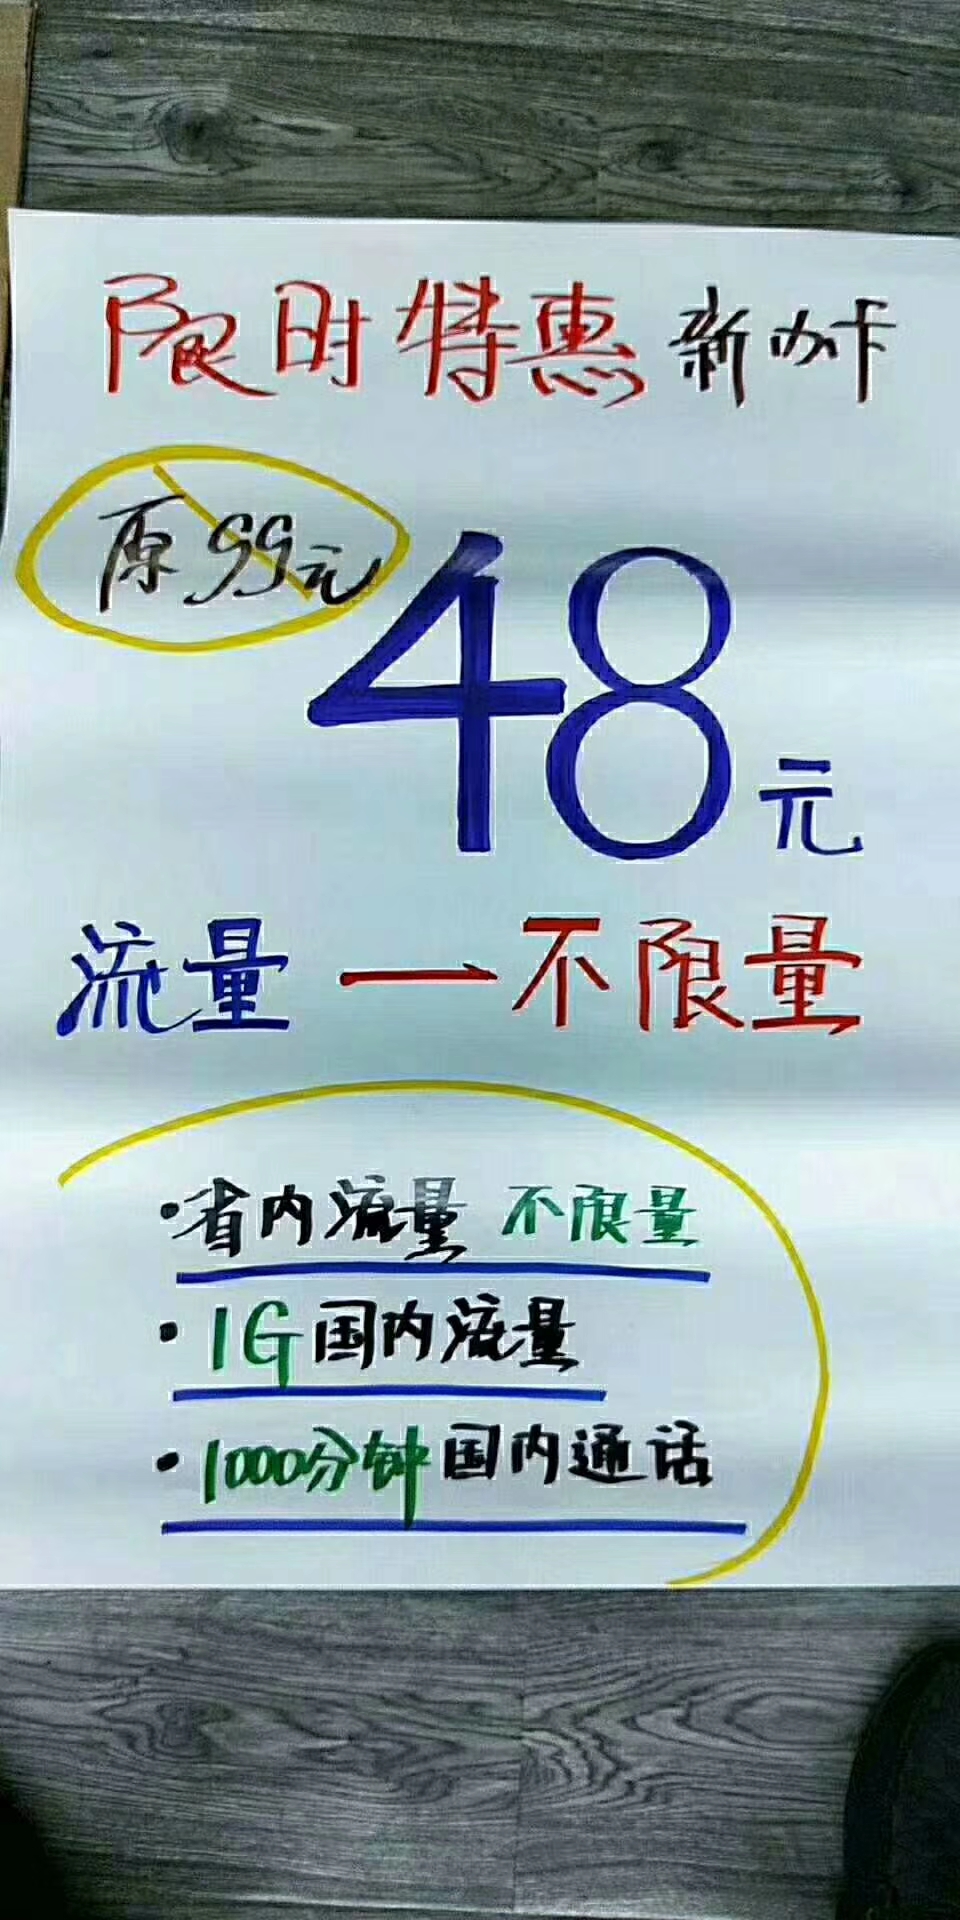 限时特惠 新办卡
原99元
48元
流量一不限量
·省内流量 不限量
·1G国内流量
·1000分钟国内通话